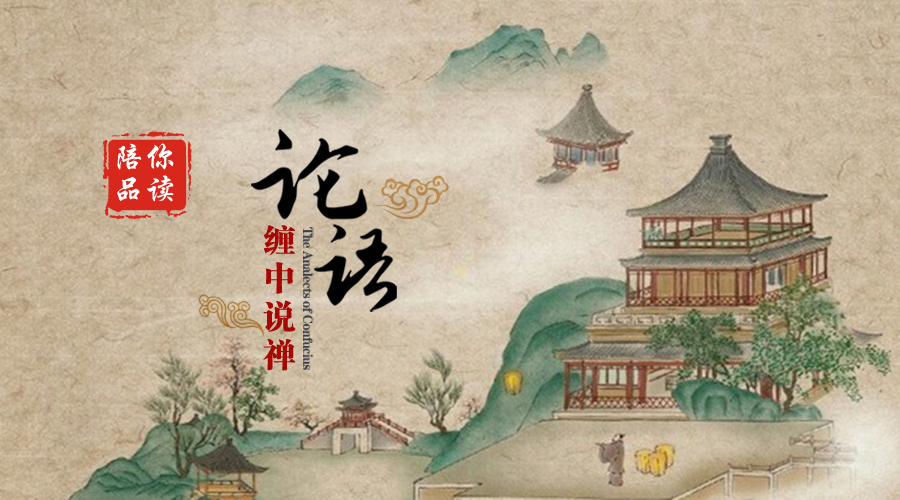 陪你
品读
论语
缠中说禅
The Analects of Confucius